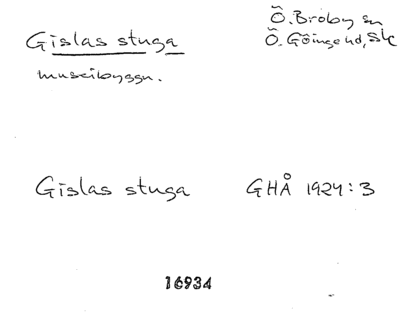 Gislas stuga
Ö. Broby sn
Ö. Göinge hd, Sk
museibyggn.
Gislas stuga GHÅ 1924:3
16934